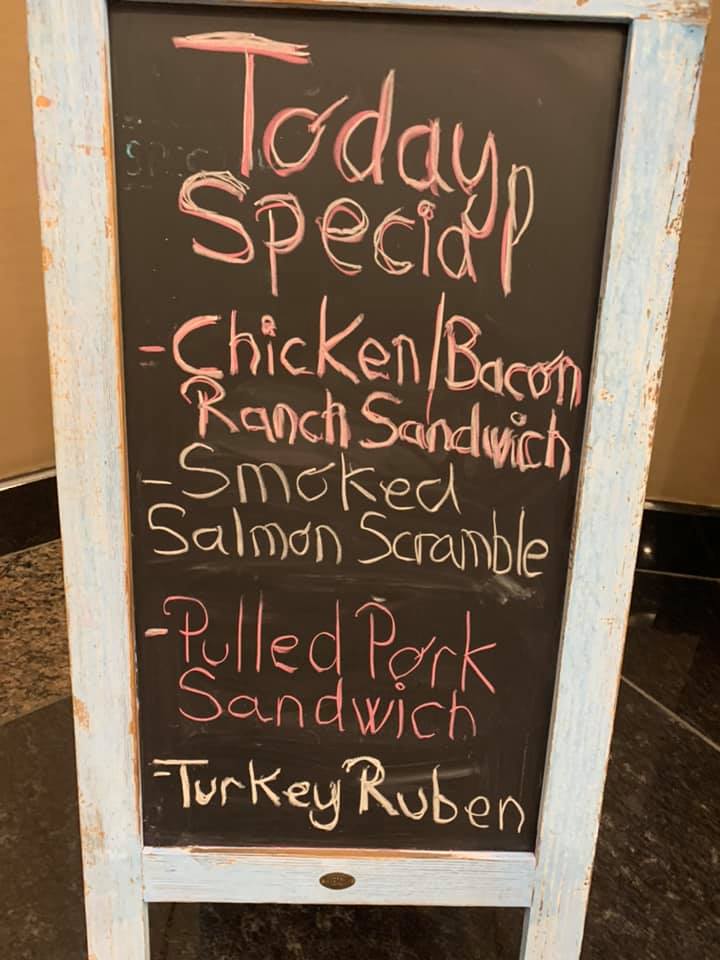 Today
Special
-Chicken/Bacon
Ranch Sandwich
-Smoked
Salmon Scramble
-Pulled Pork
Sandwich
-Turkey Ruben